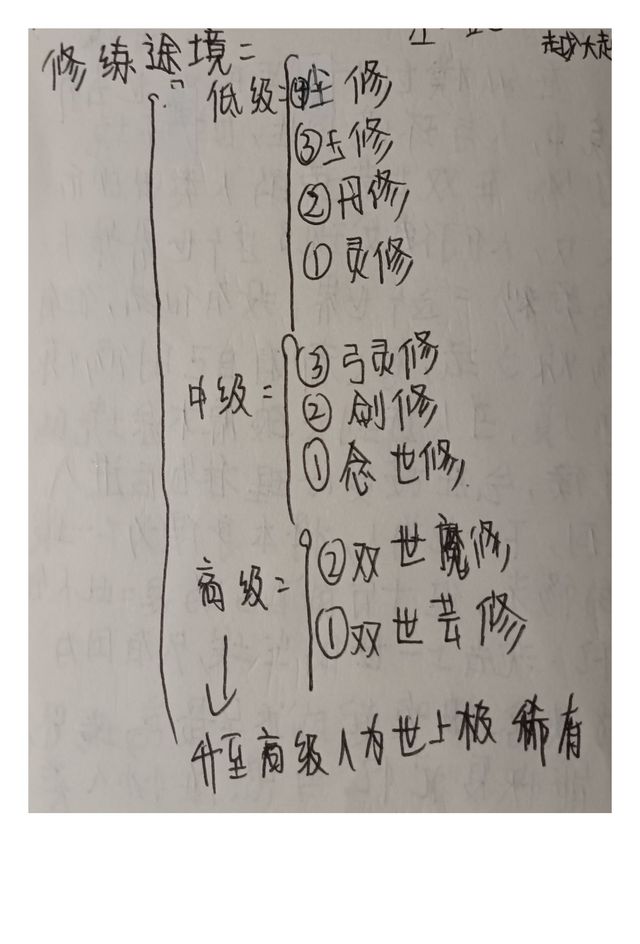 越大走
修练途境=
低级=④尘修
③玉修
②丹修
①灵修
中级=
③弓灵修
②剑修
①念世修
高级=
②双世魔修
①双世芸修
升至高级人为世上极稀有